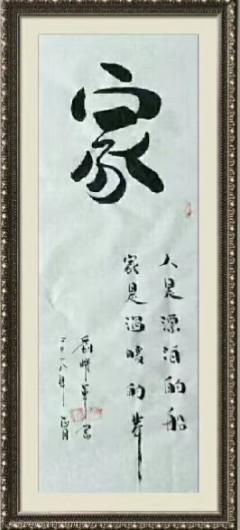 家
人是漂泊的船
家是温暖的岸
二〇一八年